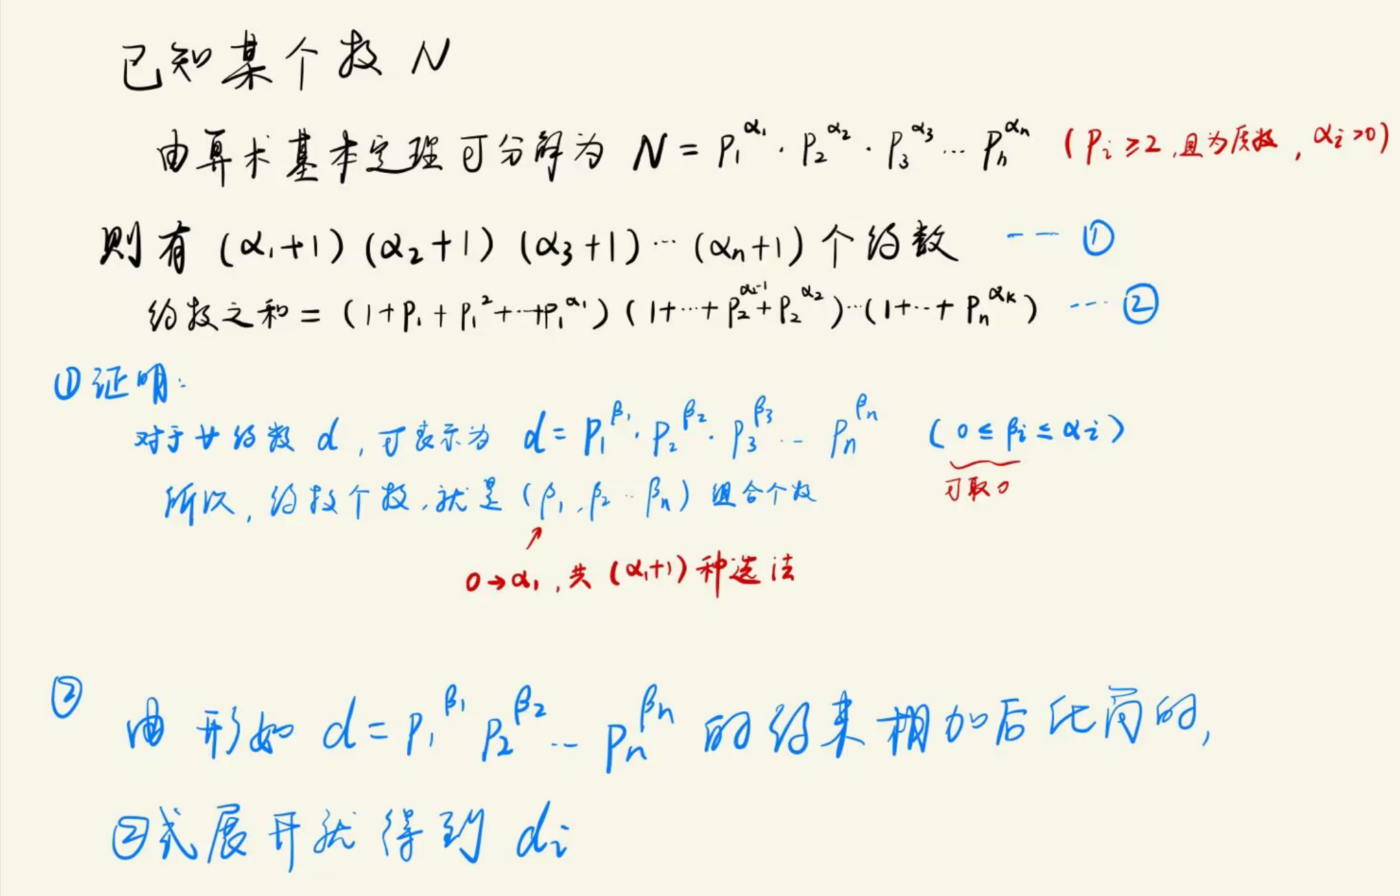 已知某个数 N
由算术基本定理可分解为 N = p₁^α₁ · p₂^α₂ · p₃^α₃ ... pₙ^αₙ (pᵢ≥2,且为质数,αᵢ>0)
则有 (α₁+1)(α₂+1)(α₃+1)…(αₙ+1) 个约数 --- ①
约数之和 = (1+p₁+p₁²+…+p₁^α₁)(1+…+p₂^(α₂-1)+p₂^α₂)…(1+…+pₙ^αₖ) --- ②
①证明:
对于 约数 d,可表示为 d = p₁^β₁ · p₂^β₂ · p₃^β₃ ... pₙ^βₙ (0≤βᵢ≤αᵢ)
可取0
所以,约数个数,就是(β₁,β₂…βₙ)组合个数
0→α₁,共(α₁+1)种选法
②
由形如 d = p₁^β₁ p₂^β₂ ... pₙ^βₙ 的约 相加后化简的,
②式展开就得到 dᵢ